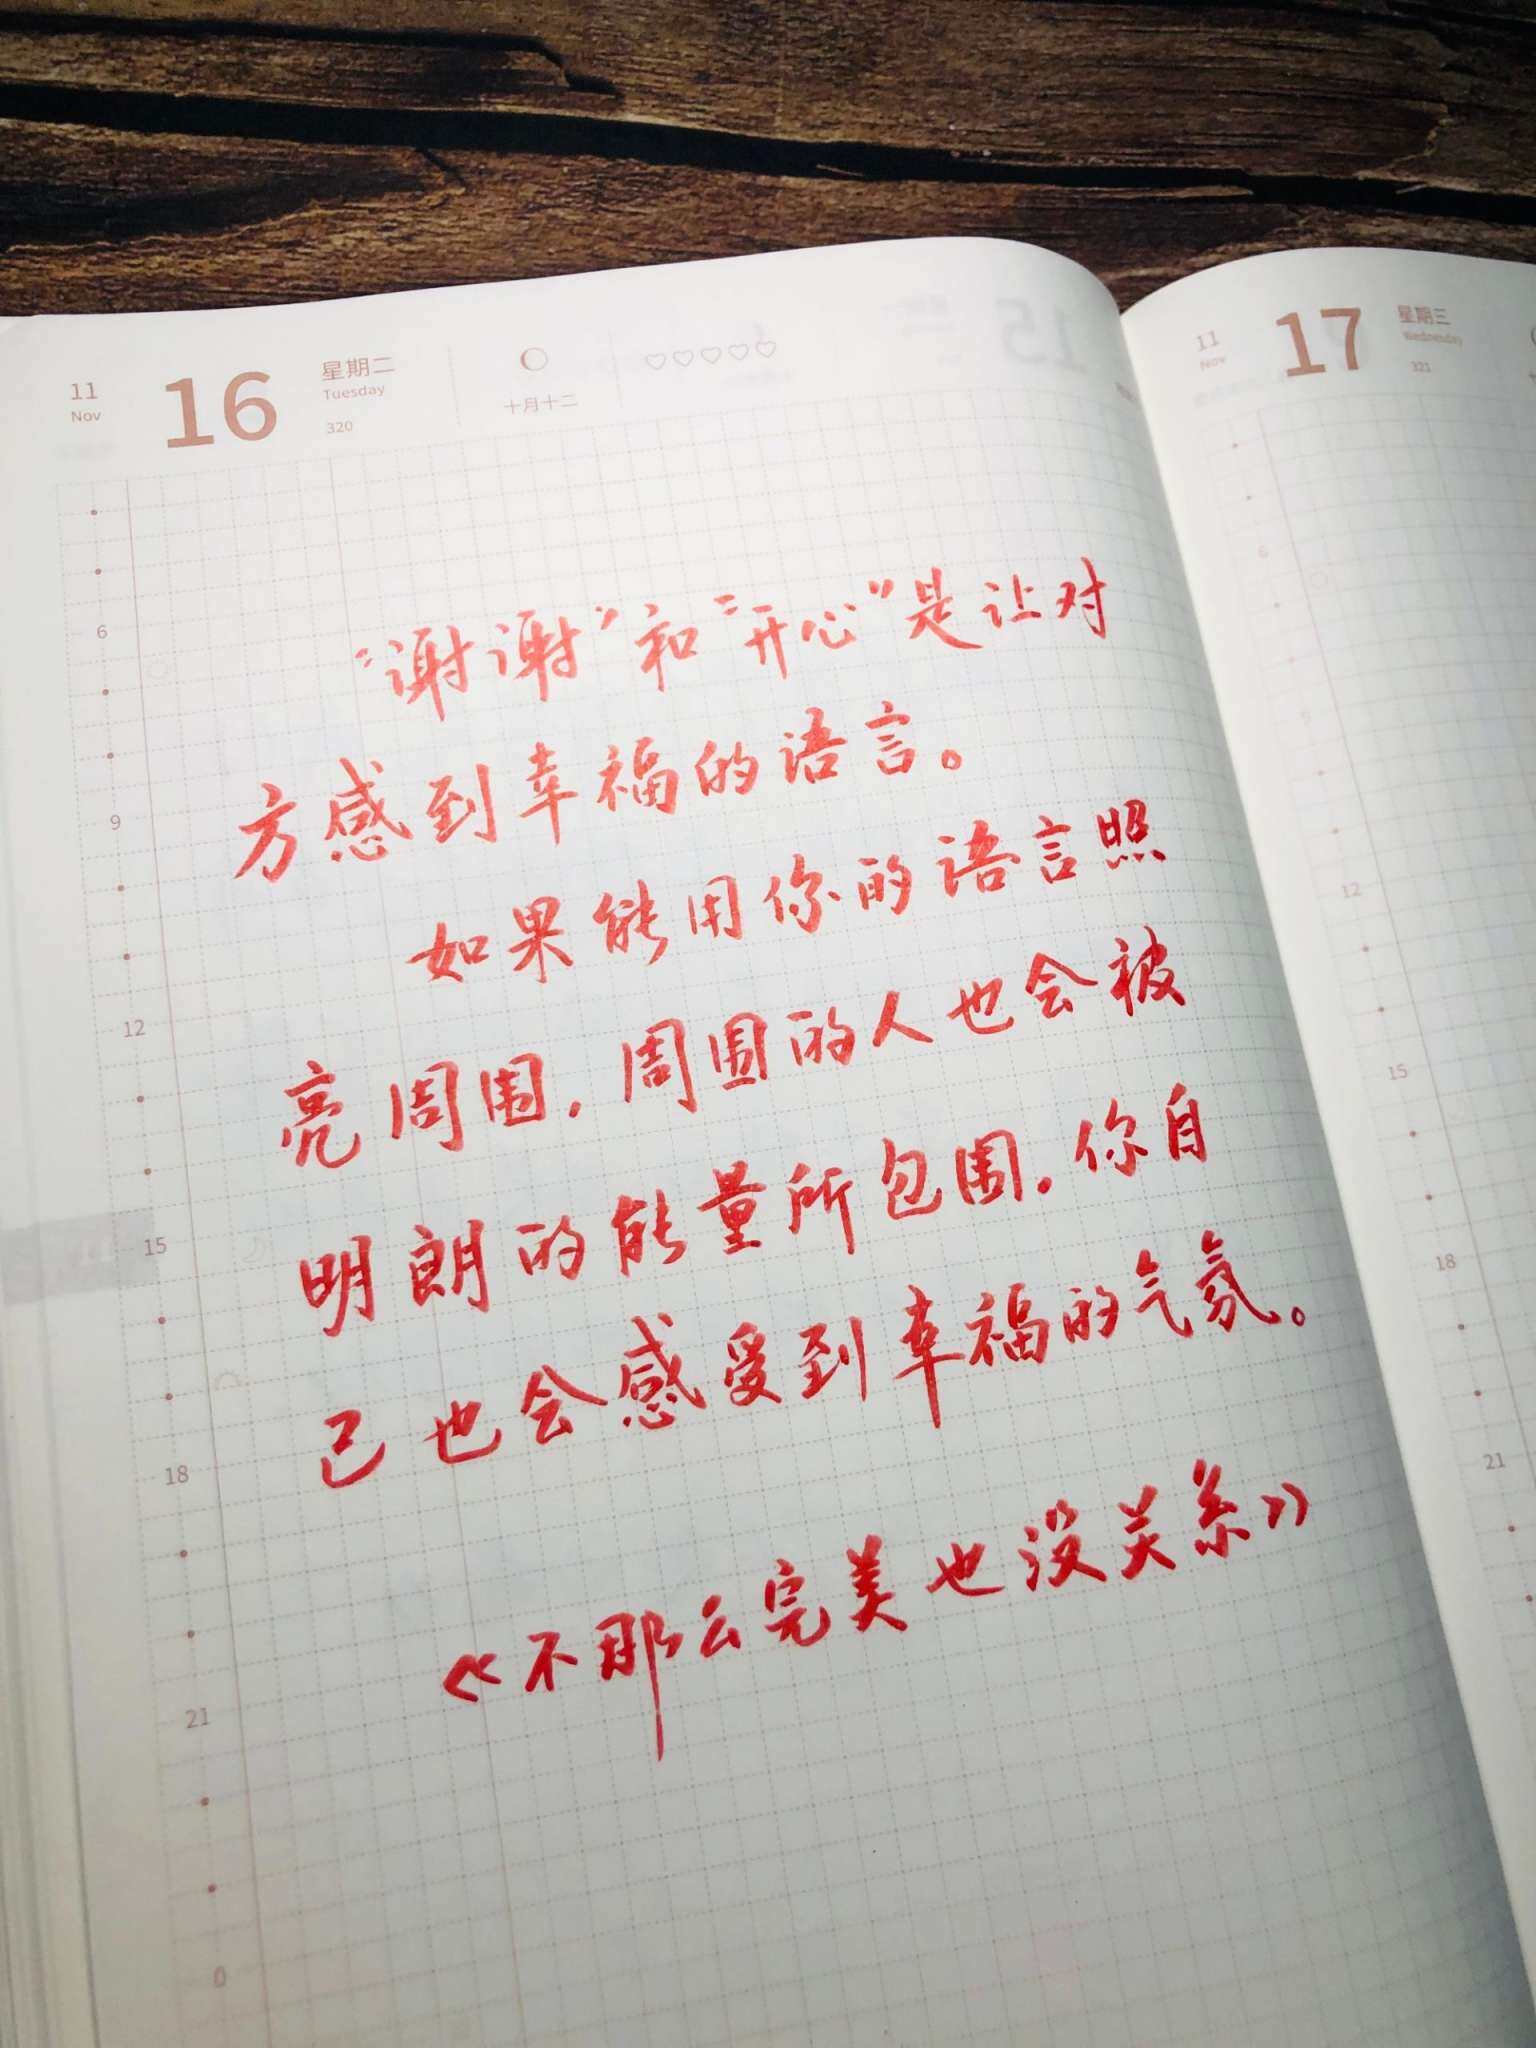 11 16 星期二 十月十二
Nov Tuesday
320
11 17 星期三
Nov Wednesday
321
“谢谢”和“开心”是让对
方感到幸福的语言。
如果能用你的语言照
亮周围，周围的人也会被
明朗的能量所包围。你自
己也会感受到幸福的气氛。
《不那么完美也没关系》
6
9
12
15
18
21
0
6
12
15
18
21